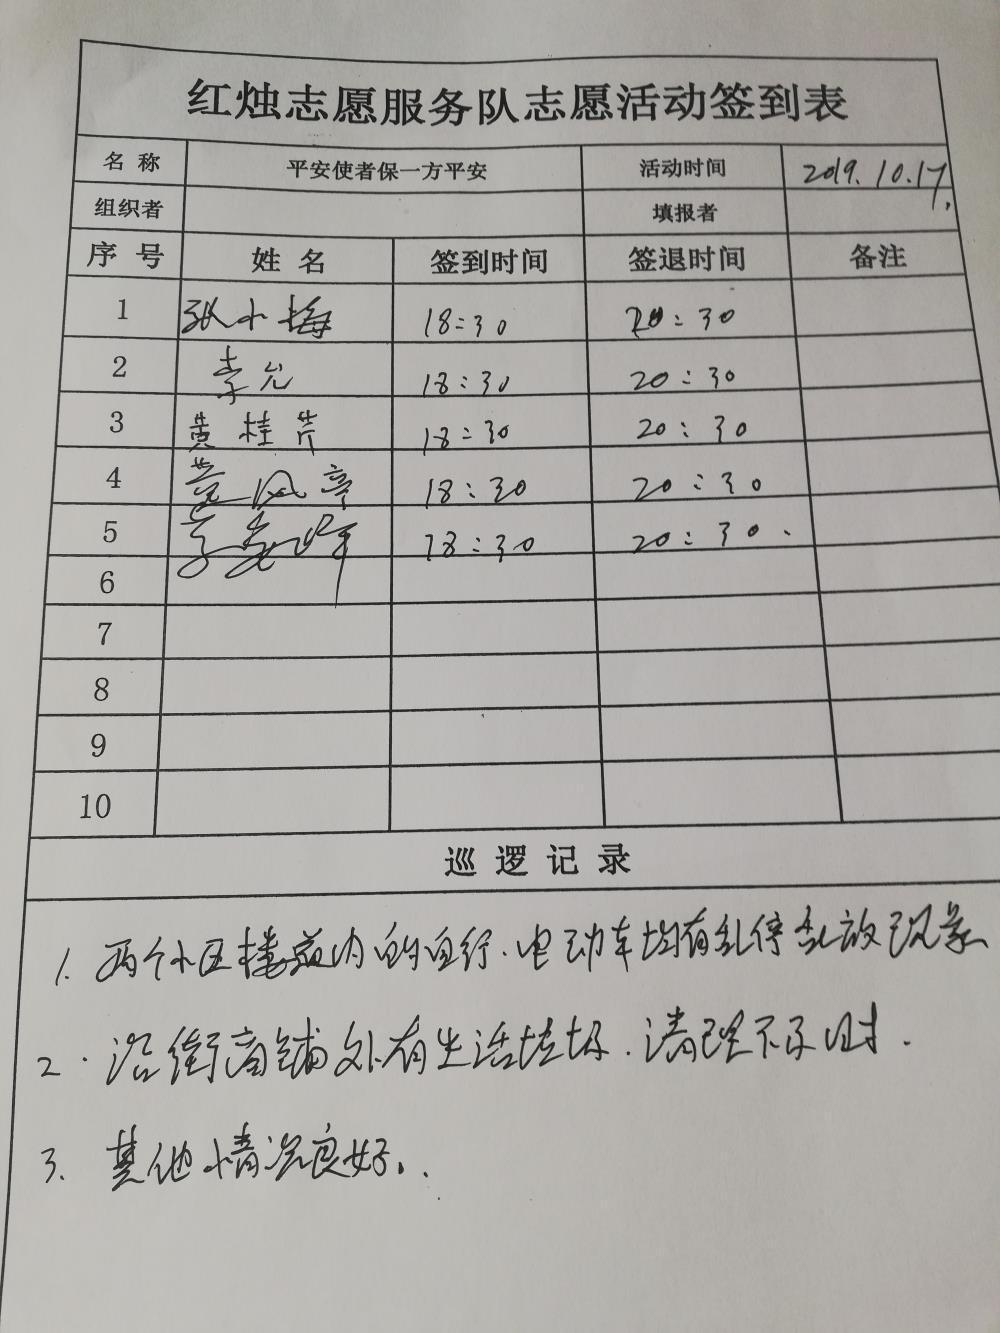 红烛志愿服务队志愿活动签到表
名称 平安使者保一方平安 活动时间 2019.10.17.
组织者 填报者
序号 姓名 签到时间 签退时间 备注
1 张小梅 18:30 20:30
2 李允 18:30 20:30
3 黄桂芹 18:30 20:30
4 18:30 20:30
5 18:30 20:30.
6
7
8
9
10
巡逻记录
1. 两个小区楼道内的自行.电动车均有乱停乱放现象
2. 沿街商铺处有生活垃圾.清理不及时.
3. 其他情况良好..